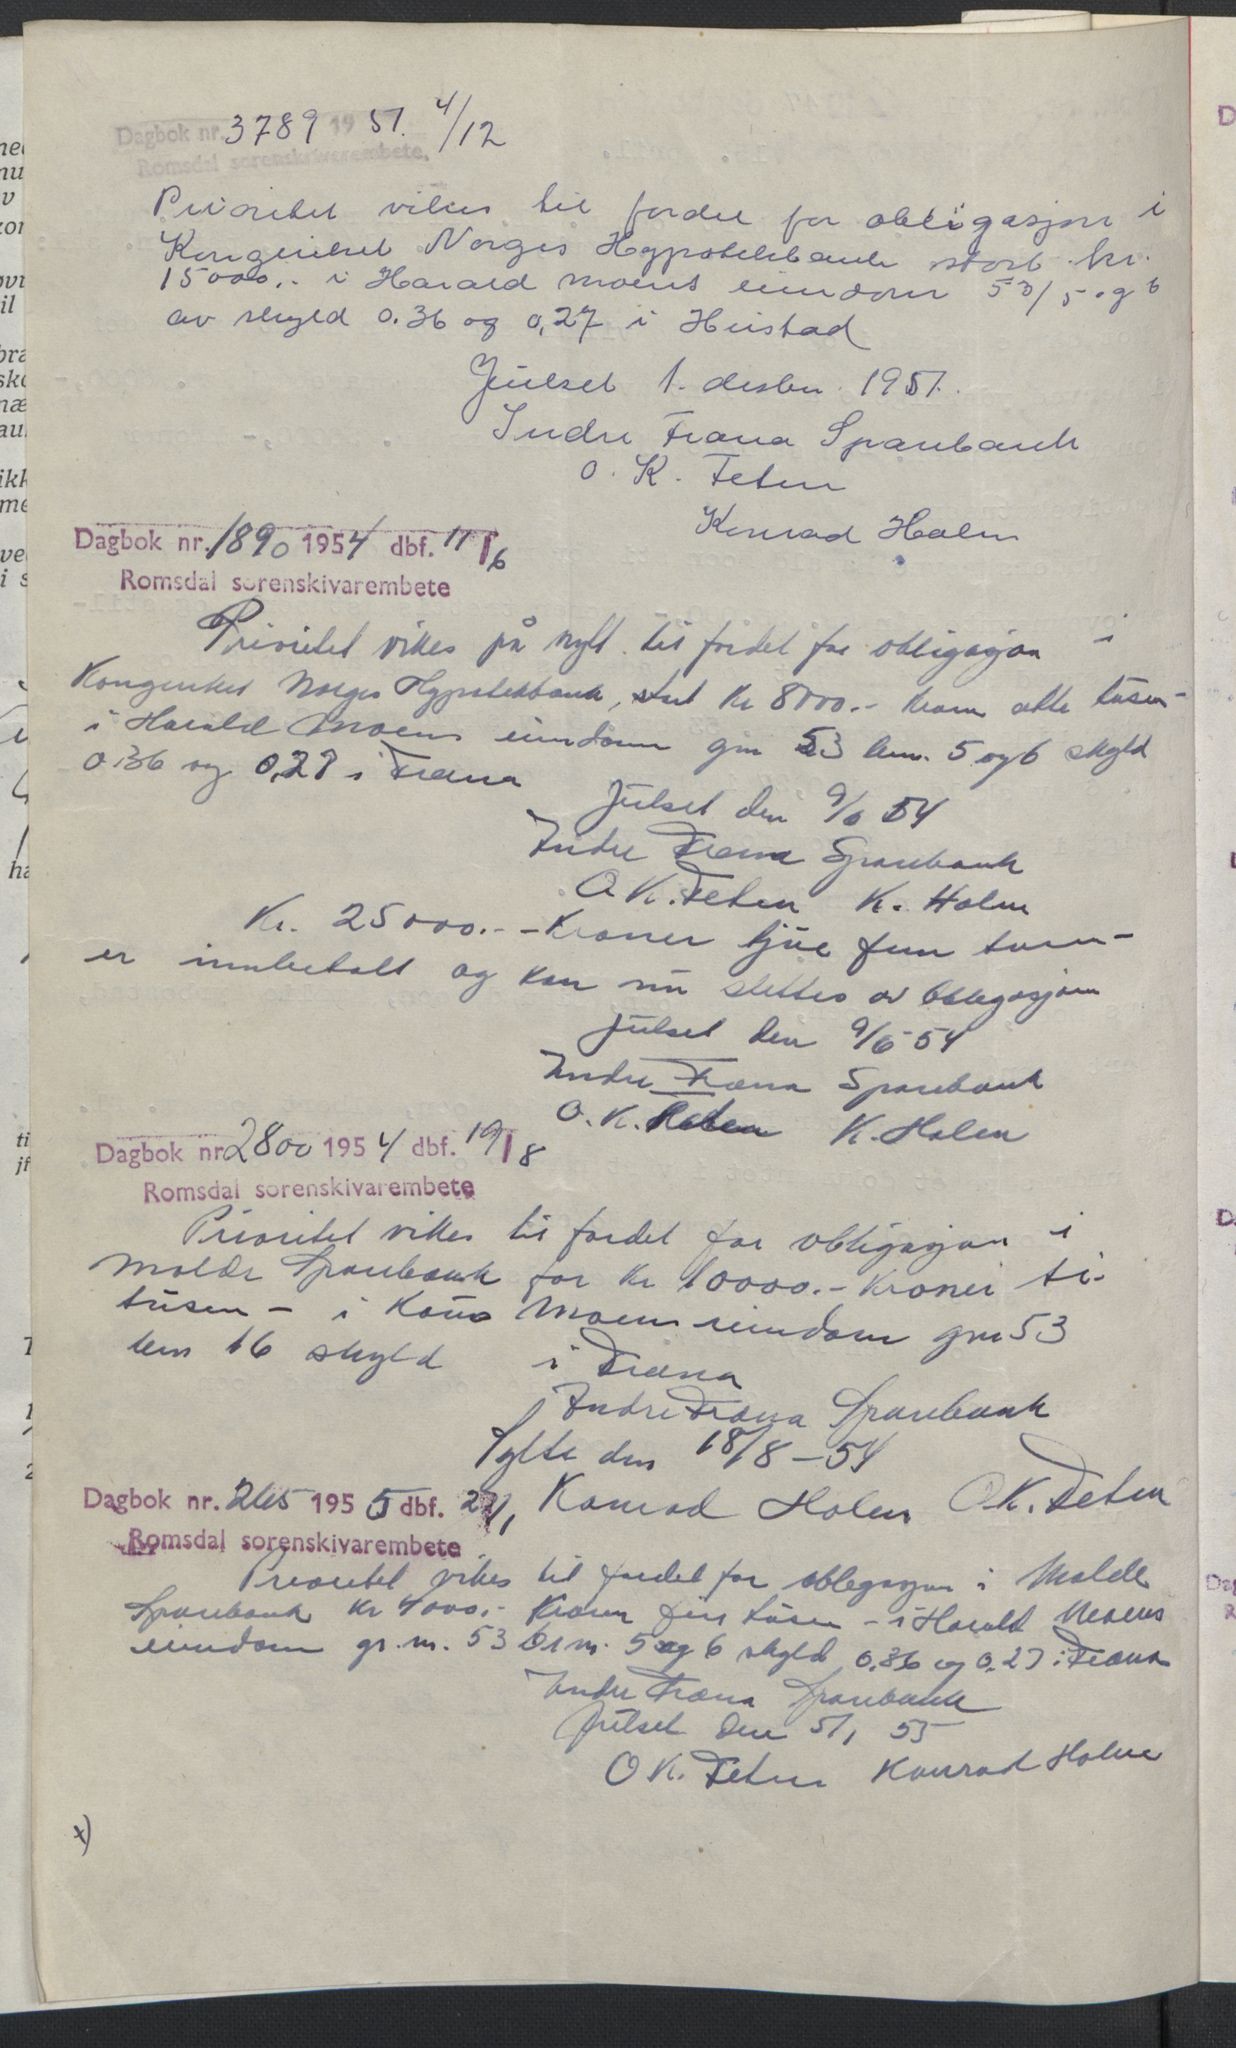 Dagbok nr. 3789 1951. 4/12
Romsdal sorenskrivarembete.
Prioritet vikes til fordel for obligasjon i
Kongeriket Norges Hypotekbank stort kr.
15000.- i Harald Moens eiendom 53/5 og 6
av skyld 0.36 og 0,27 i Hustad
Julset 1. desbr. 1951.
Indre Fræna Sparebank
O. K. Feten
Konrad Holen
Dagbok nr. 1890 1954 dbf. 11/6
Romsdal sorenskivarembete
Prioritet vikes på nytt til fordel for obligasjon i
Kongeriket Norges Hypotekbank, stort kr 8000.- kroner åtte tusen-
i Harald Moens eiendom gnr 53 bnr. 5 og 6 skyld
0.36 og 0,27 i Fræna
Julset den 9/6 54
Indre Fræna Sparebank
O. K. Feten K. Holen
Kr. 25000.- - Kroner tjue fem tusen-
er innbetalt og kan nu slettes av obligasjon
Julset den 9/6-54
Indre Fræna Sparebank
O. K. Feten K. Holen
Dagbok nr 2800 1954 dbf. 19/8
Romsdal sorenskivarembete
Prioritet vikes til fordel for obligasjon i
Molde Sparebank for kr 10000.- Kroner ti-
tusen - i Moens eiendom gnr 53
bnr 16 skyld i Fræna
Indre Fræna Sparebank
Sylte den 18/8-54
Konrad Holen O. K. Feten
Dagbok nr. 265 1955 dbf. 27/1
Romsdal sorenskivarembete
Prioritet vikes til fordel for obligasjon i Molde
Sparebank kr 4000.- Kroner fire tusen - i Harald Moens
eiendom gr.nr. 53 br.nr. 5 og 6 skyld 0.36 og 0.27 i Fræna
Indre Fræna Sparebank
Julset den 5/1 55
O K. Feten Konrad Holen
x)